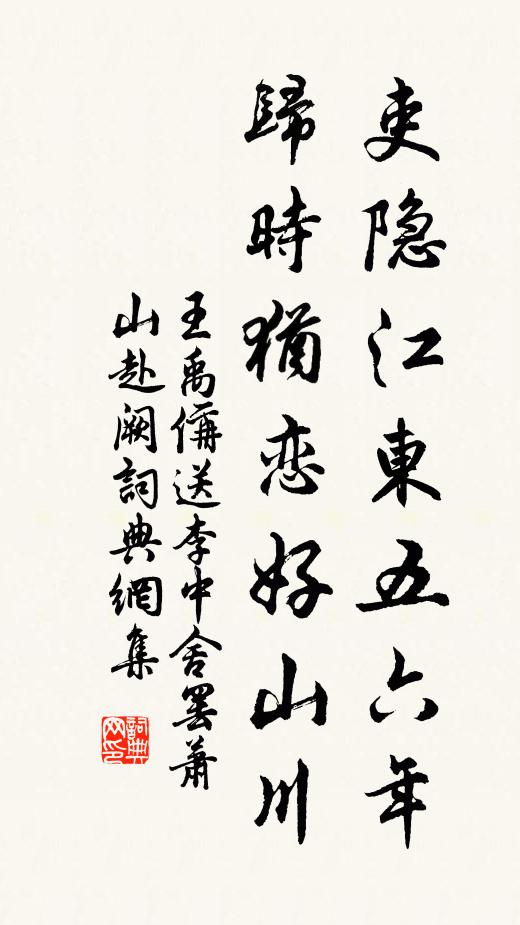 吏隐江東五六年
歸時猶恋好山川
王禹偁送李中舍罢萧
山赴阙詞典網集
詞典
网印